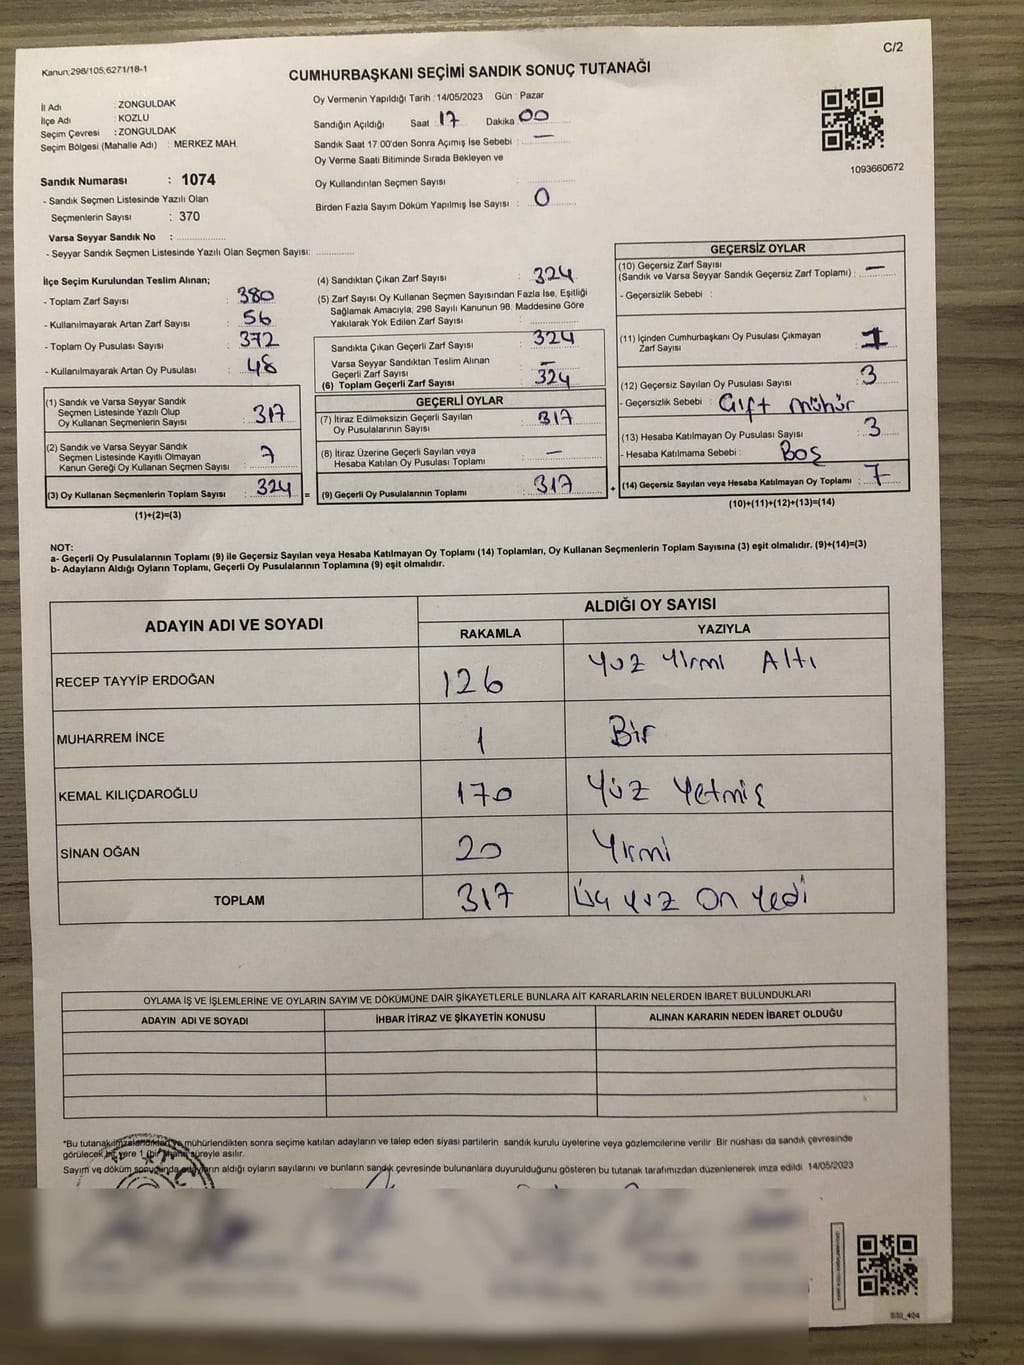 Kanun;298/105;6271/18-1
C/2
CUMHURBAŞKANI SEÇİMİ SANDIK SONUÇ TUTANAĞI
İl Adı : ZONGULDAK
İlçe Adı : KOZLU
Seçim Çevresi : ZONGULDAK
Seçim Bölgesi (Mahalle Adı) : MERKEZ MAH.
Sandık Numarası : 1074
- Sandık Seçmen Listesinde Yazılı Olan
Seçmenlerin Sayısı : 370
Varsa Seyyar Sandık No :
- Seyyar Sandık Seçmen Listesinde Yazılı Olan Seçmen Sayısı:
Oy Vermenin Yapıldığı Tarih : 14/05/2023 Gün : Pazar
Sandığın Açıldığı Saat 17 Dakika 00
Sandık Saat 17:00'den Sonra Açımış İse Sebebi : —
Oy Verme Saati Bitiminde Sırada Bekleyen ve
Oy Kullandırılan Seçmen Sayısı :
Birden Fazla Sayım Döküm Yapılmış İse Sayısı : 0
1093660672
İlçe Seçim Kurulundan Teslim Alınan;
- Toplam Zarf Sayısı : 380
- Kullanılmayarak Artan Zarf Sayısı : 56
- Toplam Oy Pusulası Sayısı : 372
- Kullanılmayarak Artan Oy Pusulası : 48
(1) Sandık ve Varsa Seyyar Sandık
Seçmen Listesinde Yazılı Olup
Oy Kullanan Seçmenlerin Sayısı : 317
(2) Sandık ve Varsa Seyyar Sandık
Seçmen Listesinde Kayıtlı Olmayan
Kanun Gereği Oy Kullanan Seçmen Sayısı : 7
(3) Oy Kullanan Seçmenlerin Toplam Sayısı : 324
(1)+(2)=(3)
(4) Sandıktan Çıkan Zarf Sayısı : 324
(5) Zarf Sayısı Oy Kullanan Seçmen Sayısından Fazla İse, Eşitliği
Sağlamak Amacıyla; 298 Sayılı Kanunun 98. Maddesine Göre
Yakılarak Yok Edilen Zarf Sayısı :
Sandıkta Çıkan Geçerli Zarf Sayısı : 324
Varsa Seyyar Sandıktan Teslim Alınan
Geçerli Zarf Sayısı : —
(6) Toplam Geçerli Zarf Sayısı : 324
GEÇERLİ OYLAR
(7) İtiraz Edilmeksizin Geçerli Sayılan
Oy Pusulalarının Sayısı : 317
(8) İtiraz Üzerine Geçerli Sayılan veya
Hesaba Katılan Oy Pusulası Toplamı : —
= (9) Geçerli Oy Pusulalarının Toplamı : 317 +
GEÇERSİZ OYLAR
(10) Geçersiz Zarf Sayısı
(Sandık ve Varsa Seyyar Sandık Geçersiz Zarf Toplamı) : —
- Geçersizlik Sebebi :
(11) İçinden Cumhurbaşkanı Oy Pusulası Çıkmayan
Zarf Sayısı : 1
(12) Geçersiz Sayılan Oy Pusulası Sayısı : 3
- Geçersizlik Sebebi : Çift mühür
(13) Hesaba Katılmayan Oy Pusulası Sayısı : 3
- Hesaba Katılmama Sebebi : Boş
(14) Geçersiz Sayılan veya Hesaba Katılmayan Oy Toplamı : 7
(10)+(11)+(12)+(13)=(14)
NOT:
a- Geçerli Oy Pusulalarının Toplamı (9) ile Geçersiz Sayılan veya Hesaba Katılmayan Oy Toplamı (14) Toplamları, Oy Kullanan Seçmenlerin Toplam Sayısına (3) eşit olmalıdır. (9)+(14)=(3)
b- Adayların Aldığı Oyların Toplamı, Geçerli Oy Pusulalarının Toplamına (9) eşit olmalıdır.
ADAYIN ADI VE SOYADI
ALDIĞI OY SAYISI
RAKAMLA YAZIYLA
RECEP TAYYİP ERDOĞAN 126 Yüz Yirmi Altı
MUHARREM İNCE 1 Bir
KEMAL KILIÇDAROĞLU 170 Yüz Yetmiş
SİNAN OĞAN 20 Yirmi
TOPLAM 317 Üç yüz On Yedi
OYLAMA İŞ VE İŞLEMLERİNE VE OYLARIN SAYIM VE DÖKÜMÜNE DAİR ŞİKAYETLERLE BUNLARA AİT KARARLARIN NELERDEN İBARET BULUNDUKLARI
ADAYIN ADI VE SOYADI İHBAR İTİRAZ VE ŞİKAYETİN KONUSU ALINAN KARARIN NEDEN İBARET OLDUĞU
*Bu tutanak imzalandıktan ve mühürlendikten sonra seçime katılan adayların ve talep eden siyasi partilerin sandık kurulu üyelerine veya gözlemcilerine verilir. Bir nüshası da sandık çevresinde
görülecek bir yere 1 (bir) hafta süreyle asılır.
Sayım ve döküm sonucunda adayların aldığı oyların sayılarını ve bunların sandık çevresinde bulunanlara duyurulduğunu gösteren bu tutanak tarafımızdan düzenlenerek imza edildi. 14/05/2023
T.C.